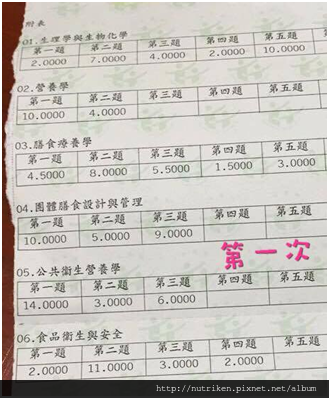 附表
01.生理學與生物化學
第一題 第二題 第三題 第四題 第五題
2.0000 7.0000 4.0000 2.0000 10.0000
02.營養學
第一題 第二題 第三題 第四題 第五題
10.0000 4.0000
03.膳食療養學
第一題 第二題 第三題 第四題 第五題
4.5000 8.0000 5.5000 1.5000 3.0000
04.團體膳食設計與管理
第一題 第二題 第三題 第四題 第五題
10.0000 5.0000 9.0000
第一次
05.公共衛生營養學
第一題 第二題 第三題 第四題 第五題
14.0000 3.0000 6.0000
06.食品衛生與安全
第一題 第二題 第三題 第四題 第五題
2.0000 11.0000 3.0000 2.0000
http://nutriken.pixnet.net/album